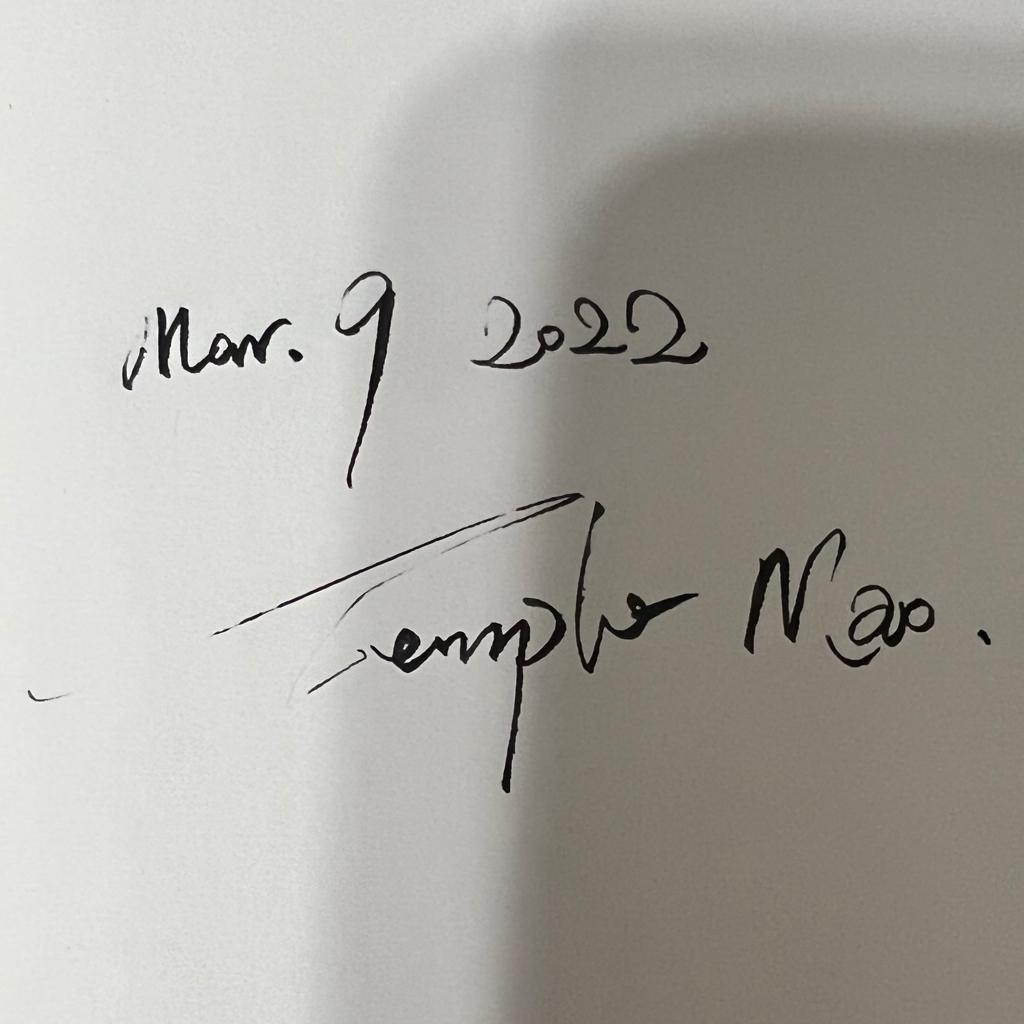 Mar. 9 2022
Temple Mao.